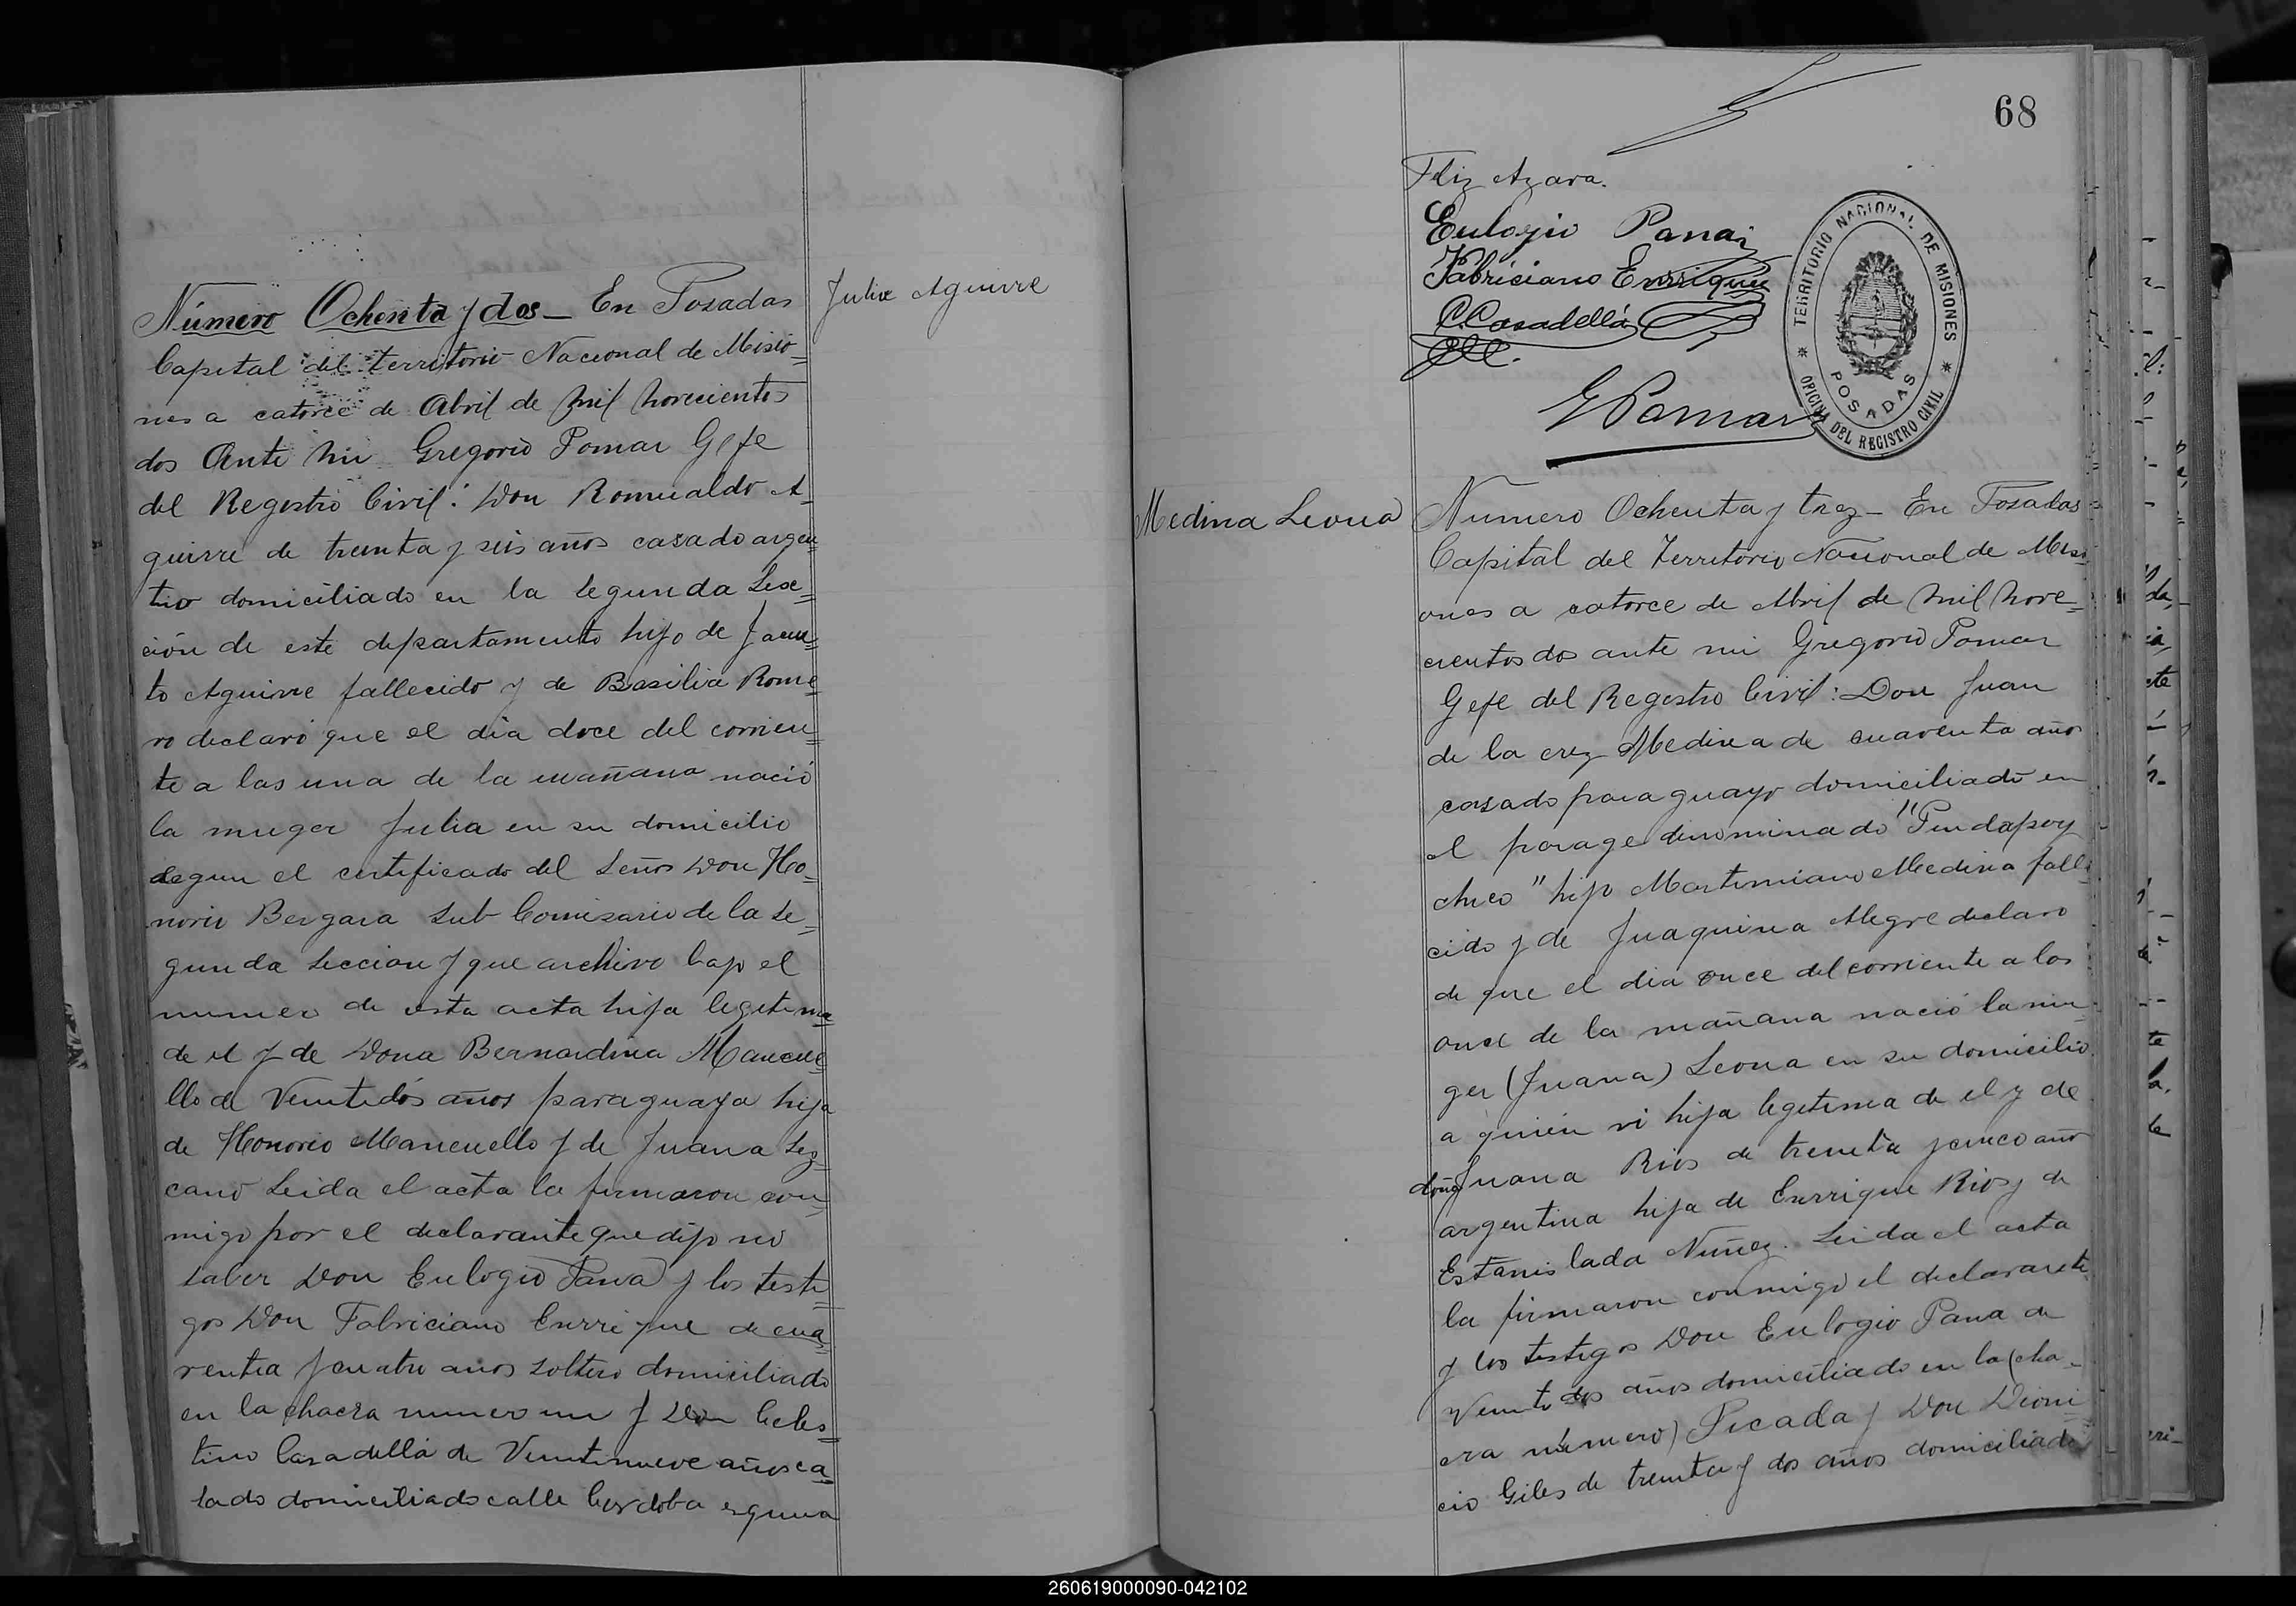 Julia Aguirre
Número Ochenta y dos — En Posadas
Capital del territorio Nacional de Misio=
nes a catorce de Abril de mil novecientos
dos Ante mi Gregorio Pomar Gefe
del Registro Civil: Don Romualdo A=
guirre de treinta y seis años casado argen=
tino domiciliado en la segunda Sec=
ción de este departamento hijo de Jacin=
to Aguirre fallecido y de Basilia Rome=
ro declaró que el dia doce del corrien=
te a las una de la mañana nació
la muger Julia en su domicilio
segun el certificado del Señor Don Ho=
norio Bergara Sub Comisario de la Se=
gunda Seccion y que archivo bajo el
numero de esta acta hija legitima
de el y de Dona Bernardina Mancue=
llo de Veintidós años paraguaya hija
de Honorio Mancuello y de Juana Lez=
cano Leida el acta la firmaron con=
migo por el declarante que dijo no
saber Don Eulogio Pana y los testi=
gos Don Fabriciano Enrrique de cua=
renta y cuatro años soltero domiciliado
en la chacra numero un y Don Celes=
tino Casadellá de Veintinueve años ca=
sado domiciliado calle Cordoba esquina
68
Feliz Azara.
Eulogio Pana
Fabriciano Enrrique
C. Casadellá
G Pomar
TERRITORIO NACIONAL DE MISIONES
OFICINA DEL REGISTRO CIVIL
POSADAS
Medina Leona
Numero Ochenta y trez — En Posadas
Capital del Territorio Nacional de Misi=
ones a catorce de Abril de mil nove=
cientos dos ante mi Gregorio Pomar
Gefe del Registro Civil: Don Juan
de la cruz Medina de cuarenta años
casado paraguayo domiciliado en
el parage denominado "Pindapoy
chico" hijo Martimiano Medina falle
cido y de Juaquina Alegre declaro
de que el dia once del corriente a las
once de la mañana nació la mu
ger (Juana) Leona en su domicilio
a quien vi hija legitima de el y de
doña Juana Rios de treinta y cinco años
argentina hija de Enrrique Rios y de
Estanislada Nuñez. Leida el acta
la firmaron conmigo el declarante
y los testigos Don Eulogio Pana de
Veinte dos años domiciliado en la (cha=
cra número) Picada y Don Dioni
cio Giles de treinta y dos años domiciliado
260619000090-042102